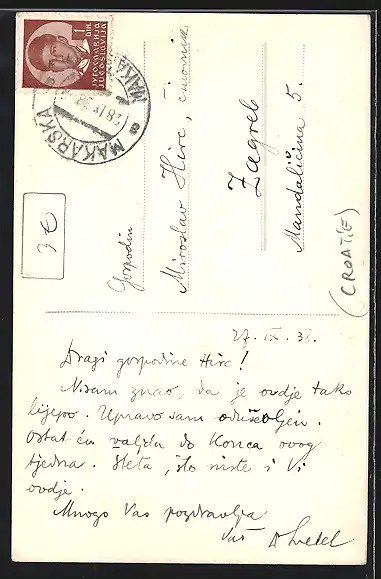 1 DIN.
ЈУГОСЛАВИЈА
JUGOSLAVIJA
MAKARSKA
Gospodin
Miroslav Hirc, činovnik
Zagreb
Mandaličina 5.
3 €
(CROATIE)
27. IX. 38.
Dragi gospodine Hirc!
Nisam znao, da je ovdje tako
lijepo. Upravo sam oduševljen.
Ostat ću valjda do konca ovog
tjedna. Šteta, što niste i Vi
ovdje.
Mnogo Vas pozdravlja
Vaš